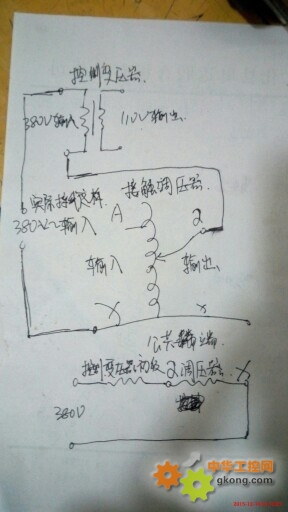 控制变压器
380V输入
110V输出
实际接线这样
接触调压器
380V~输入
A
2
输入
输出
X
x
公共端
控制变压器初级
2调压器
X
380V
中华工控网
gkong.com